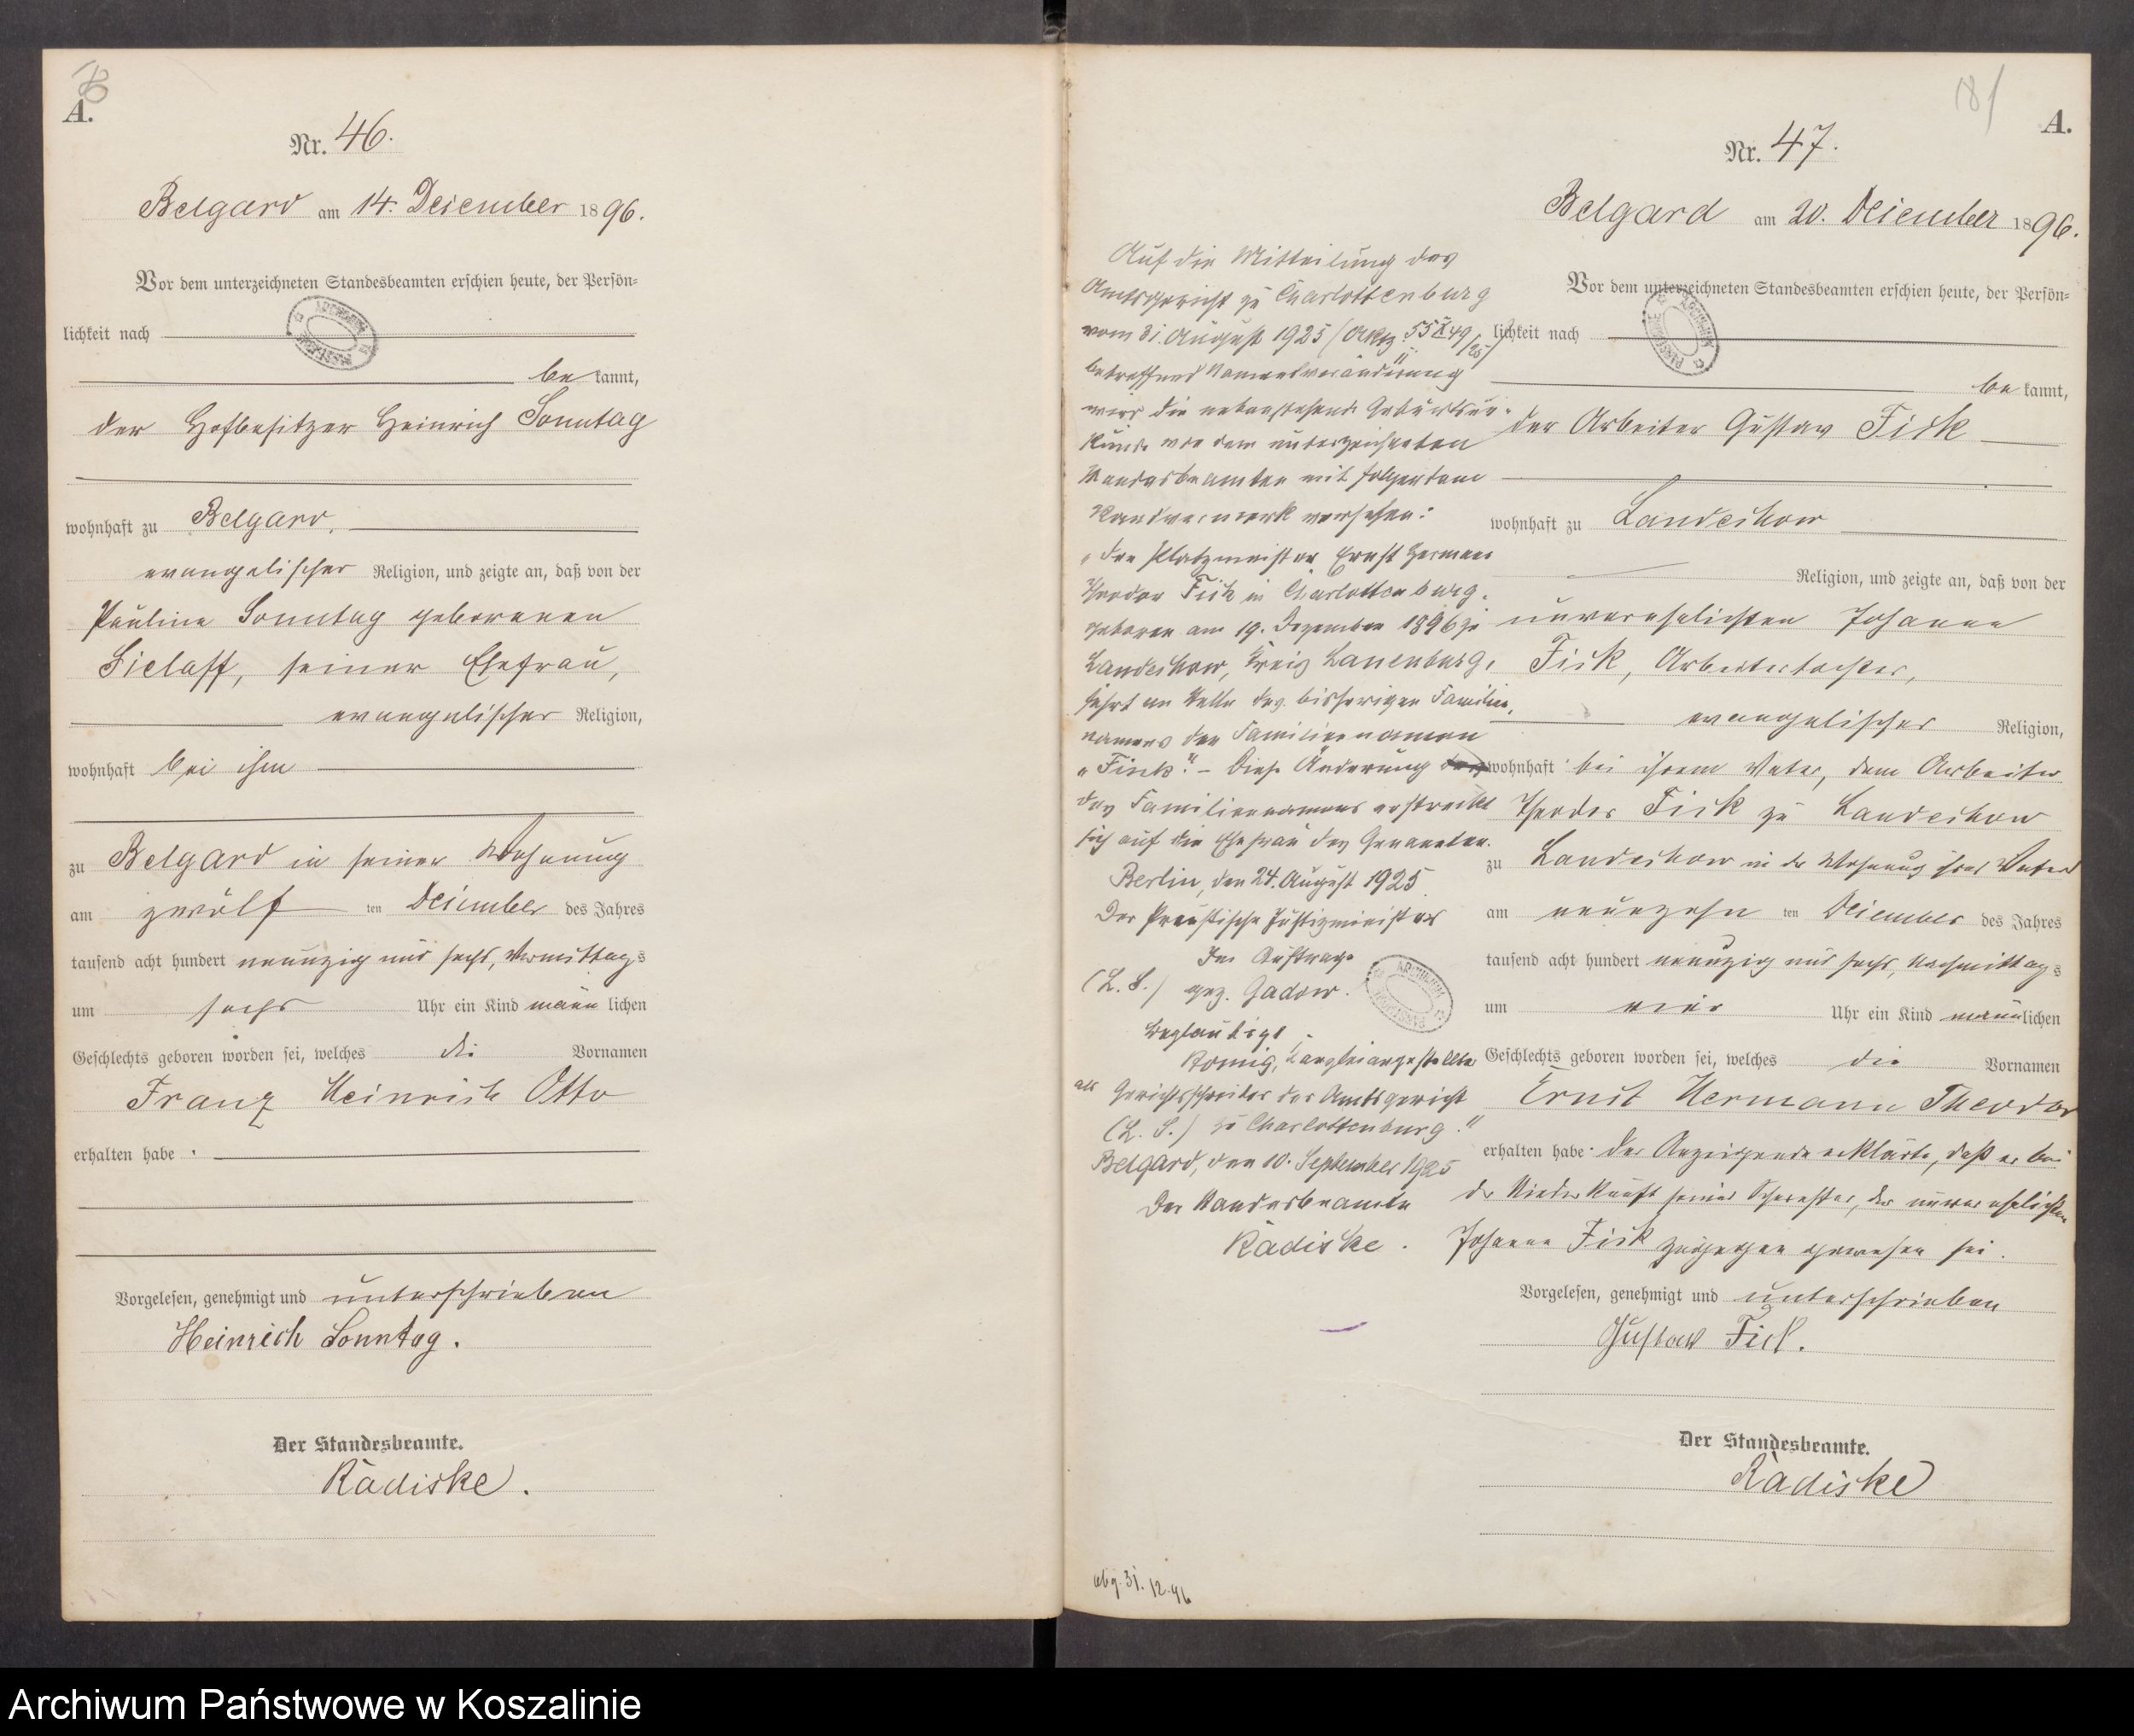 A.
Nr. 46.
Belgard am 14. December 1896.
Vor dem unterzeichneten Standesbeamten erschien heute, der Persön=
lichkeit nach
be kannt,
der Hofbesitzer Heinrich Sonntag
wohnhaft zu Belgard,
evangelischer Religion, und zeigte an, daß von der
Pauline Sonntag geborenen
Sielaff, seiner Ehefrau,
evangelischer Religion,
wohnhaft bei ihm
zu Belgard in seiner Wohnung
am zwölf ten December des Jahres
tausend acht hundert neunzig und sechs, Vormittags
um sechs Uhr ein Kind männlichen
Geschlechts geboren worden sei, welches die Vornamen
Franz Heinrich Otto
erhalten habe.
Vorgelesen, genehmigt und unterschrieben
Heinrich Sonntag.
Der Standesbeamte.
Radiske.
181
A.
Nr. 47.
Belgard am 20. December 1896.
Vor dem unterzeichneten Standesbeamten erschien heute, der Persön=
lichkeit nach
be kannt,
der Arbeiter Gustav Fick
wohnhaft zu Landechow
Religion, und zeigte an, daß von der
unverehelichten Johanne
Fick, Arbeitertochter,
evangelischer Religion,
wohnhaft bei ihrem Vater, dem Arbeiter
Theodor Fick zu Landechow
zu Landechow in der Wohnung ihres Vaters
am neunzehn ten December des Jahres
tausend acht hundert neunzig und sechs, Nachmittags
um vier Uhr ein Kind männlichen
Geschlechts geboren worden sei, welches die Vornamen
Ernst Hermann Theodor
erhalten habe. Der Anzeigende erklärte, daß er bei
der Niederkunft seiner Schwester, der unverehelichten
Johanne Fick zugegen gewesen sei.
Vorgelesen, genehmigt und unterschrieben
Gustav Fick.
Der Standesbeamte.
Radiske
Auf die Mitteilung des
Amtsgericht zu Charlottenburg
vom 31. August 1925 (
betreffend Namensveränderung
wird die nebenstehende Geburtsur-
kunde von dem unterzeichneten
Standesbeamten mit folgendem
Randvermerk versehen:
"Der Platzmeister Ernst Hermann
Theodor Fick in Charlottenburg,
geboren am 19. Dezember 1896 zu
Landechow, Kreis Lauenburg,
führt an Stelle des bisherigen Familien-
namens den Familiennamen
"Finck." – Diese Änderung
des Familiennamens erstreckt
sich auf die Ehefrau des Genannten.
Berlin, den 24. August 1925
Der Preußische Justizminister
Im Auftrage
(L. S.) gez. Gadow.
Beglaubigt
König, Kanzleiangestellter
als Gerichtsschreiber des Amtsgericht
(L. S.) zu Charlottenburg."
Belgard, den 10. September 1925
Der Standesbeamte
Radiske.
abg. 31. 12. 96
Archiwum Państwowe w Koszalinie